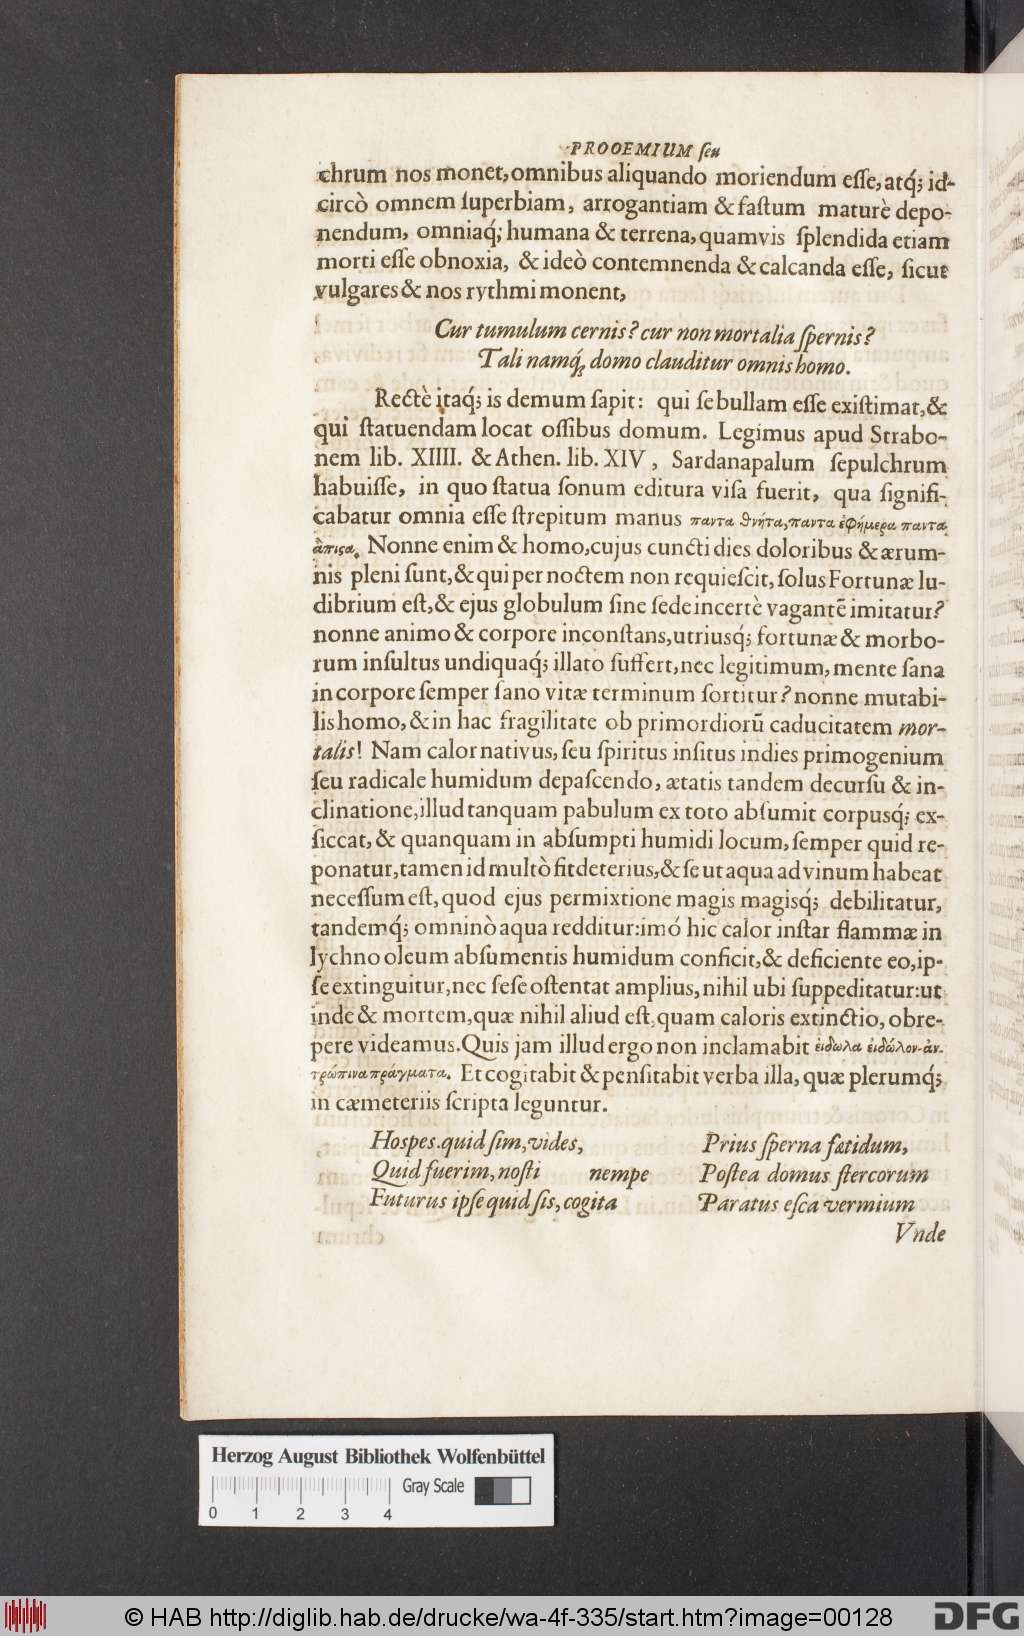 PROOEMIUM ſeu
chrum nos monet, omnibus aliquando moriendum eſſe, atq́; id-
circò omnem ſuperbiam, arrogantiam & faſtum maturè depo-
nendum, omniaq́; humana & terrena, quamvis ſplendida etiam
morti eſſe obnoxia, & ideò contemnenda & calcanda eſſe, ſicut
vulgares & nos rythmi monent,
Cur tumulum cernis? cur non mortalia ſpernis?
Tali namq́; domo clauditur omnis homo.
Rectè itaq́; is demum ſapit: qui ſe bullam eſſe exiſtimat, &
qui ſtatuendam locat oſſibus domum. Legimus apud Strabo-
nem lib. XIIII. & Athen. lib. XIV, Sardanapalum ſepulchrum
habuiſſe, in quo ſtatua ſonum editura viſa fuerit, qua ſignifi-
cabatur omnia eſſe ſtrepitum manus παντα θνήτα, παντα ἐφήμερα παντα
ἄπιςα. Nonne enim & homo, cujus cuncti dies doloribus & ærum-
nis pleni ſunt, & qui per noctem non requieſcit, ſolus Fortunæ lu-
dibrium eſt, & ejus globulum ſine ſede incertè vagantē imitatur?
nonne animo & corpore inconſtans, utriusq́; fortunæ & morbo-
rum inſultus undiquaq́; illato ſuffert, nec legitimum, mente ſana
in corpore ſemper ſano vitæ terminum ſortitur? nonne mutabi-
lis homo, & in hac fragilitate ob primordiorū caducitatem mor-
talis! Nam calor nativus, ſeu ſpiritus inſitus indies primogenium
ſeu radicale humidum depaſcendo, ætatis tandem decurſu & in-
clinatione, illud tanquam pabulum ex toto abſumit corpusq́; ex-
ſiccat, & quanquam in abſumpti humidi locum, ſemper quid re-
ponatur, tamen id multò fit deterius, & ſe ut aqua ad vinum habeat
neceſſum eſt, quod ejus permixtione magis magisq́; debilitatur,
tandemq́; omninò aqua redditur: imó hic calor inſtar flammæ in
lychno oleum abſumentis humidum conficit, & deficiente eo, ip-
ſe extinguitur, nec ſeſe oſtentat amplius, nihil ubi ſuppeditatur: ut
inde & mortem, quæ nihil aliud eſt, quam caloris extinctio, obre-
pere videamus. Quis jam illud ergo non inclamabit ἐιδωλα ἐιδώλον-ἀν-
τρώπινα πράγματα. Et cogitabit & penſitabit verba illa, quæ plerumq́;
in cæmeteriis ſcripta leguntur.
Hospes. quid ſim, vides,
Quid fuerim, noſti nempe
Futurus ipſe quid ſis, cogita
Prius ſperna fœtidum,
Poſtea domus ſtercorum
Paratus eſca vermium
Vnde
Herzog August Bibliothek Wolfenbüttel
Gray Scale
0 1 2 3 4
© HAB http://diglib.hab.de/drucke/wa-4f-335/start.htm?image=00128
DFG